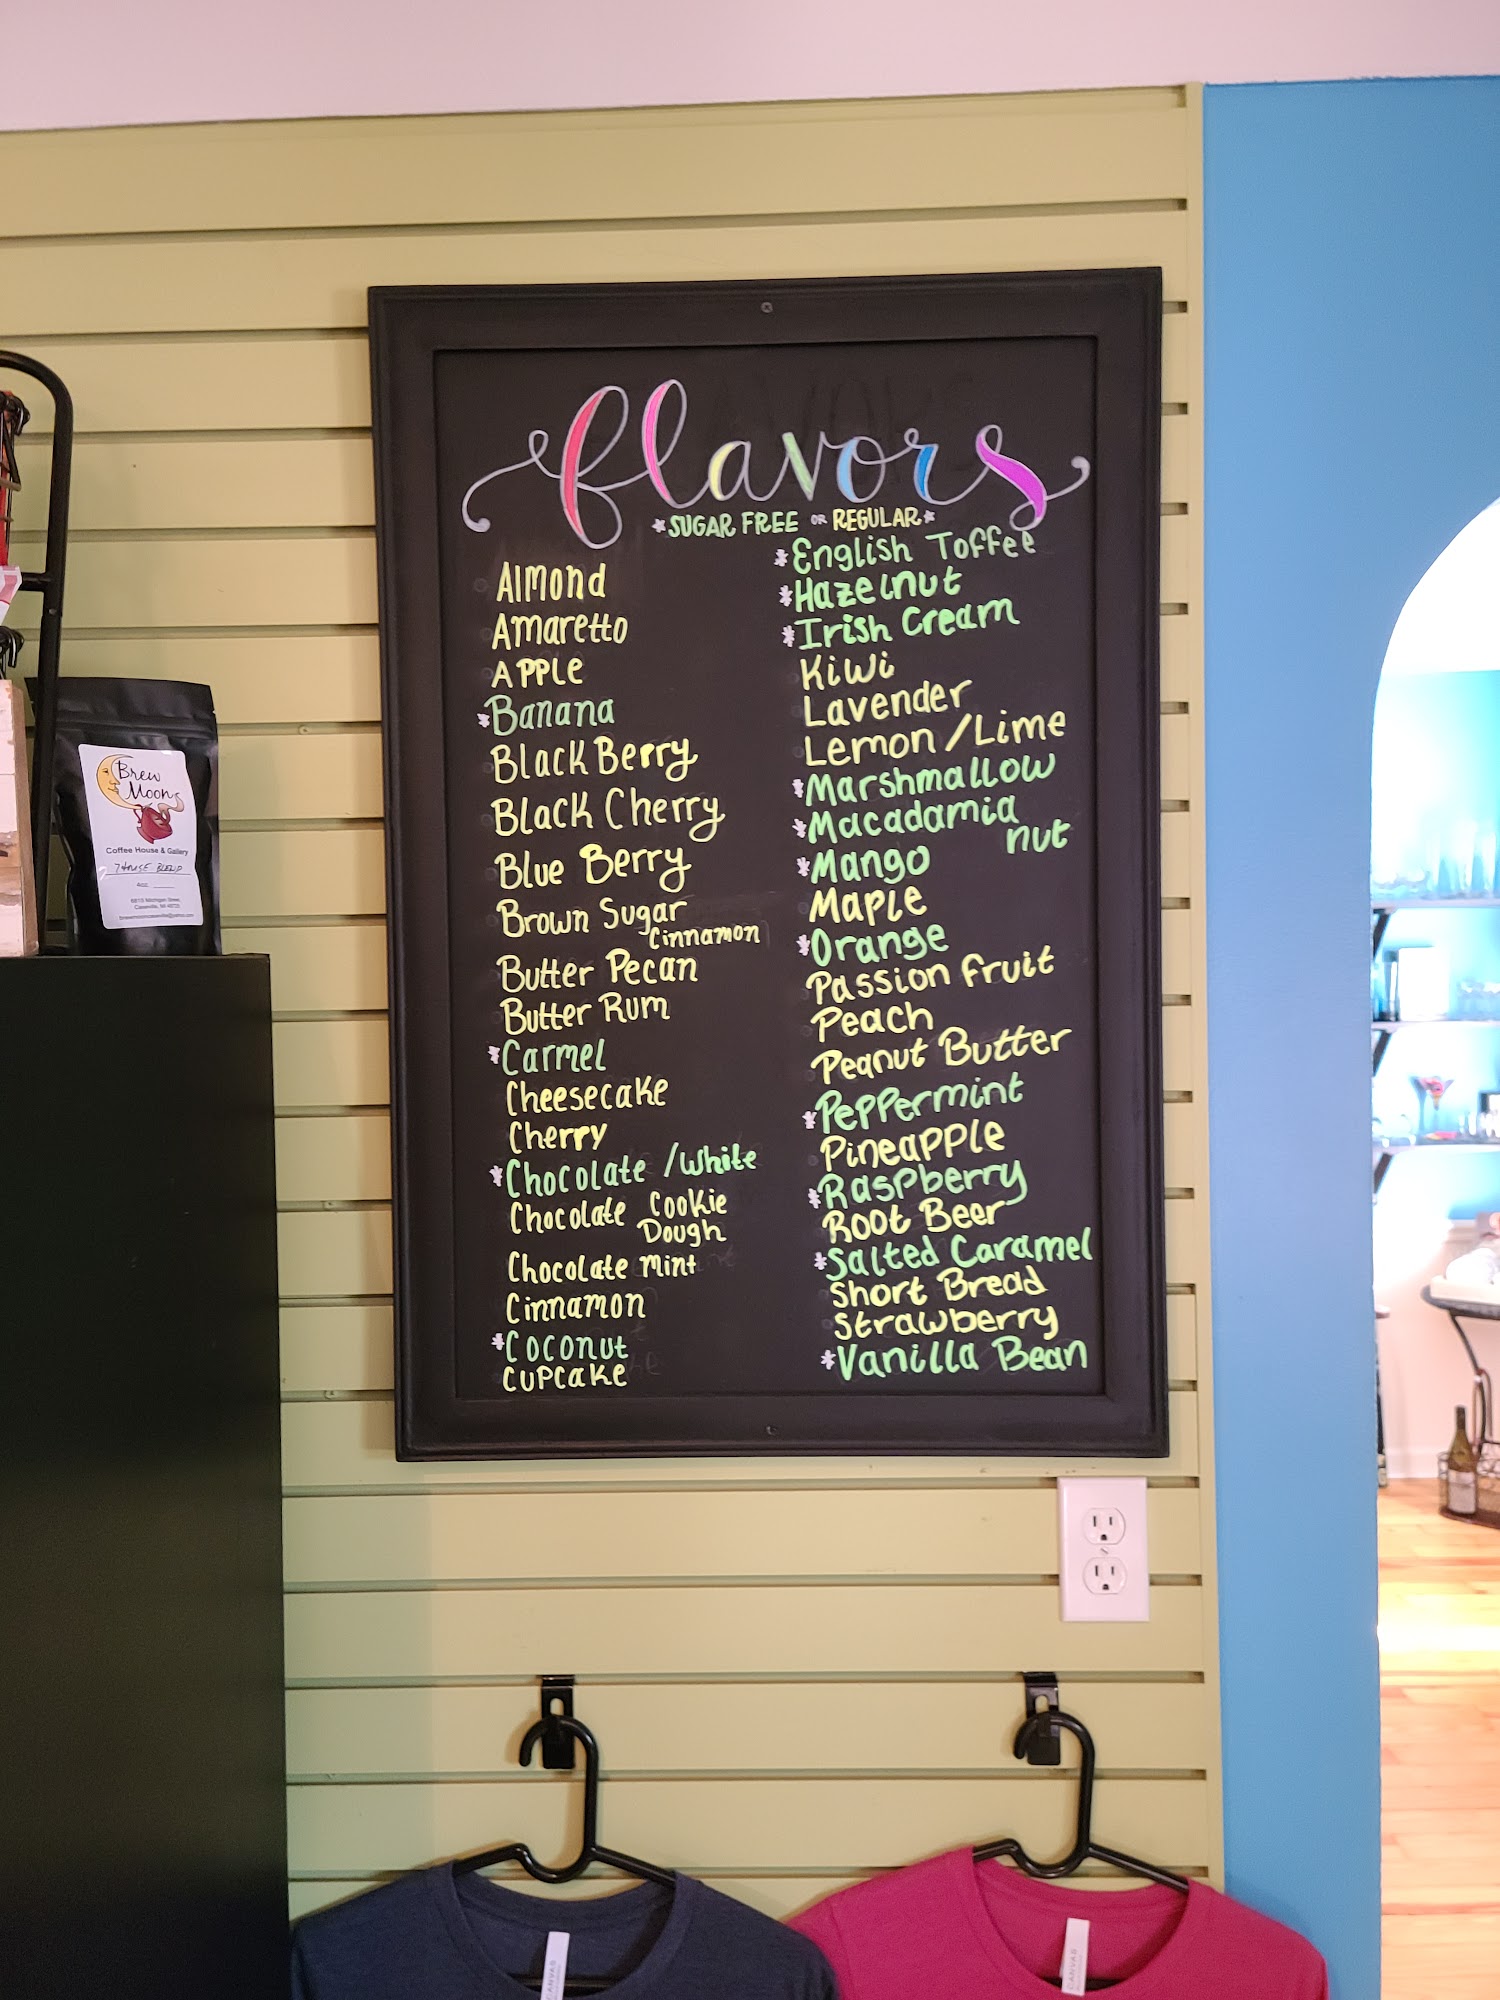 flavors
*SUGAR FREE OR REGULAR*
Almond
Amaretto
Apple
*Banana
Black Berry
Black Cherry
Blue Berry
Brown Sugar
Cinnamon
Butter Pecan
Butter Rum
*Carmel
Cheesecake
Cherry
*Chocolate /White
Chocolate Cookie
Dough
Chocolate Mint
Cinnamon
*Coconut
Cupcake
*English Toffee
*Hazelnut
*Irish Cream
Kiwi
Lavender
Lemon/Lime
*Marshmallow
*Macadamia
nut
*Mango
Maple
*Orange
Passion Fruit
Peach
Peanut Butter
*Peppermint
Pineapple
*Raspberry
Root Beer
*Salted Caramel
Short Bread
Strawberry
*Vanilla Bean
Brew
Moon
Coffee House & Gallery
House Blend
4oz.
CANVAS
CANVAS